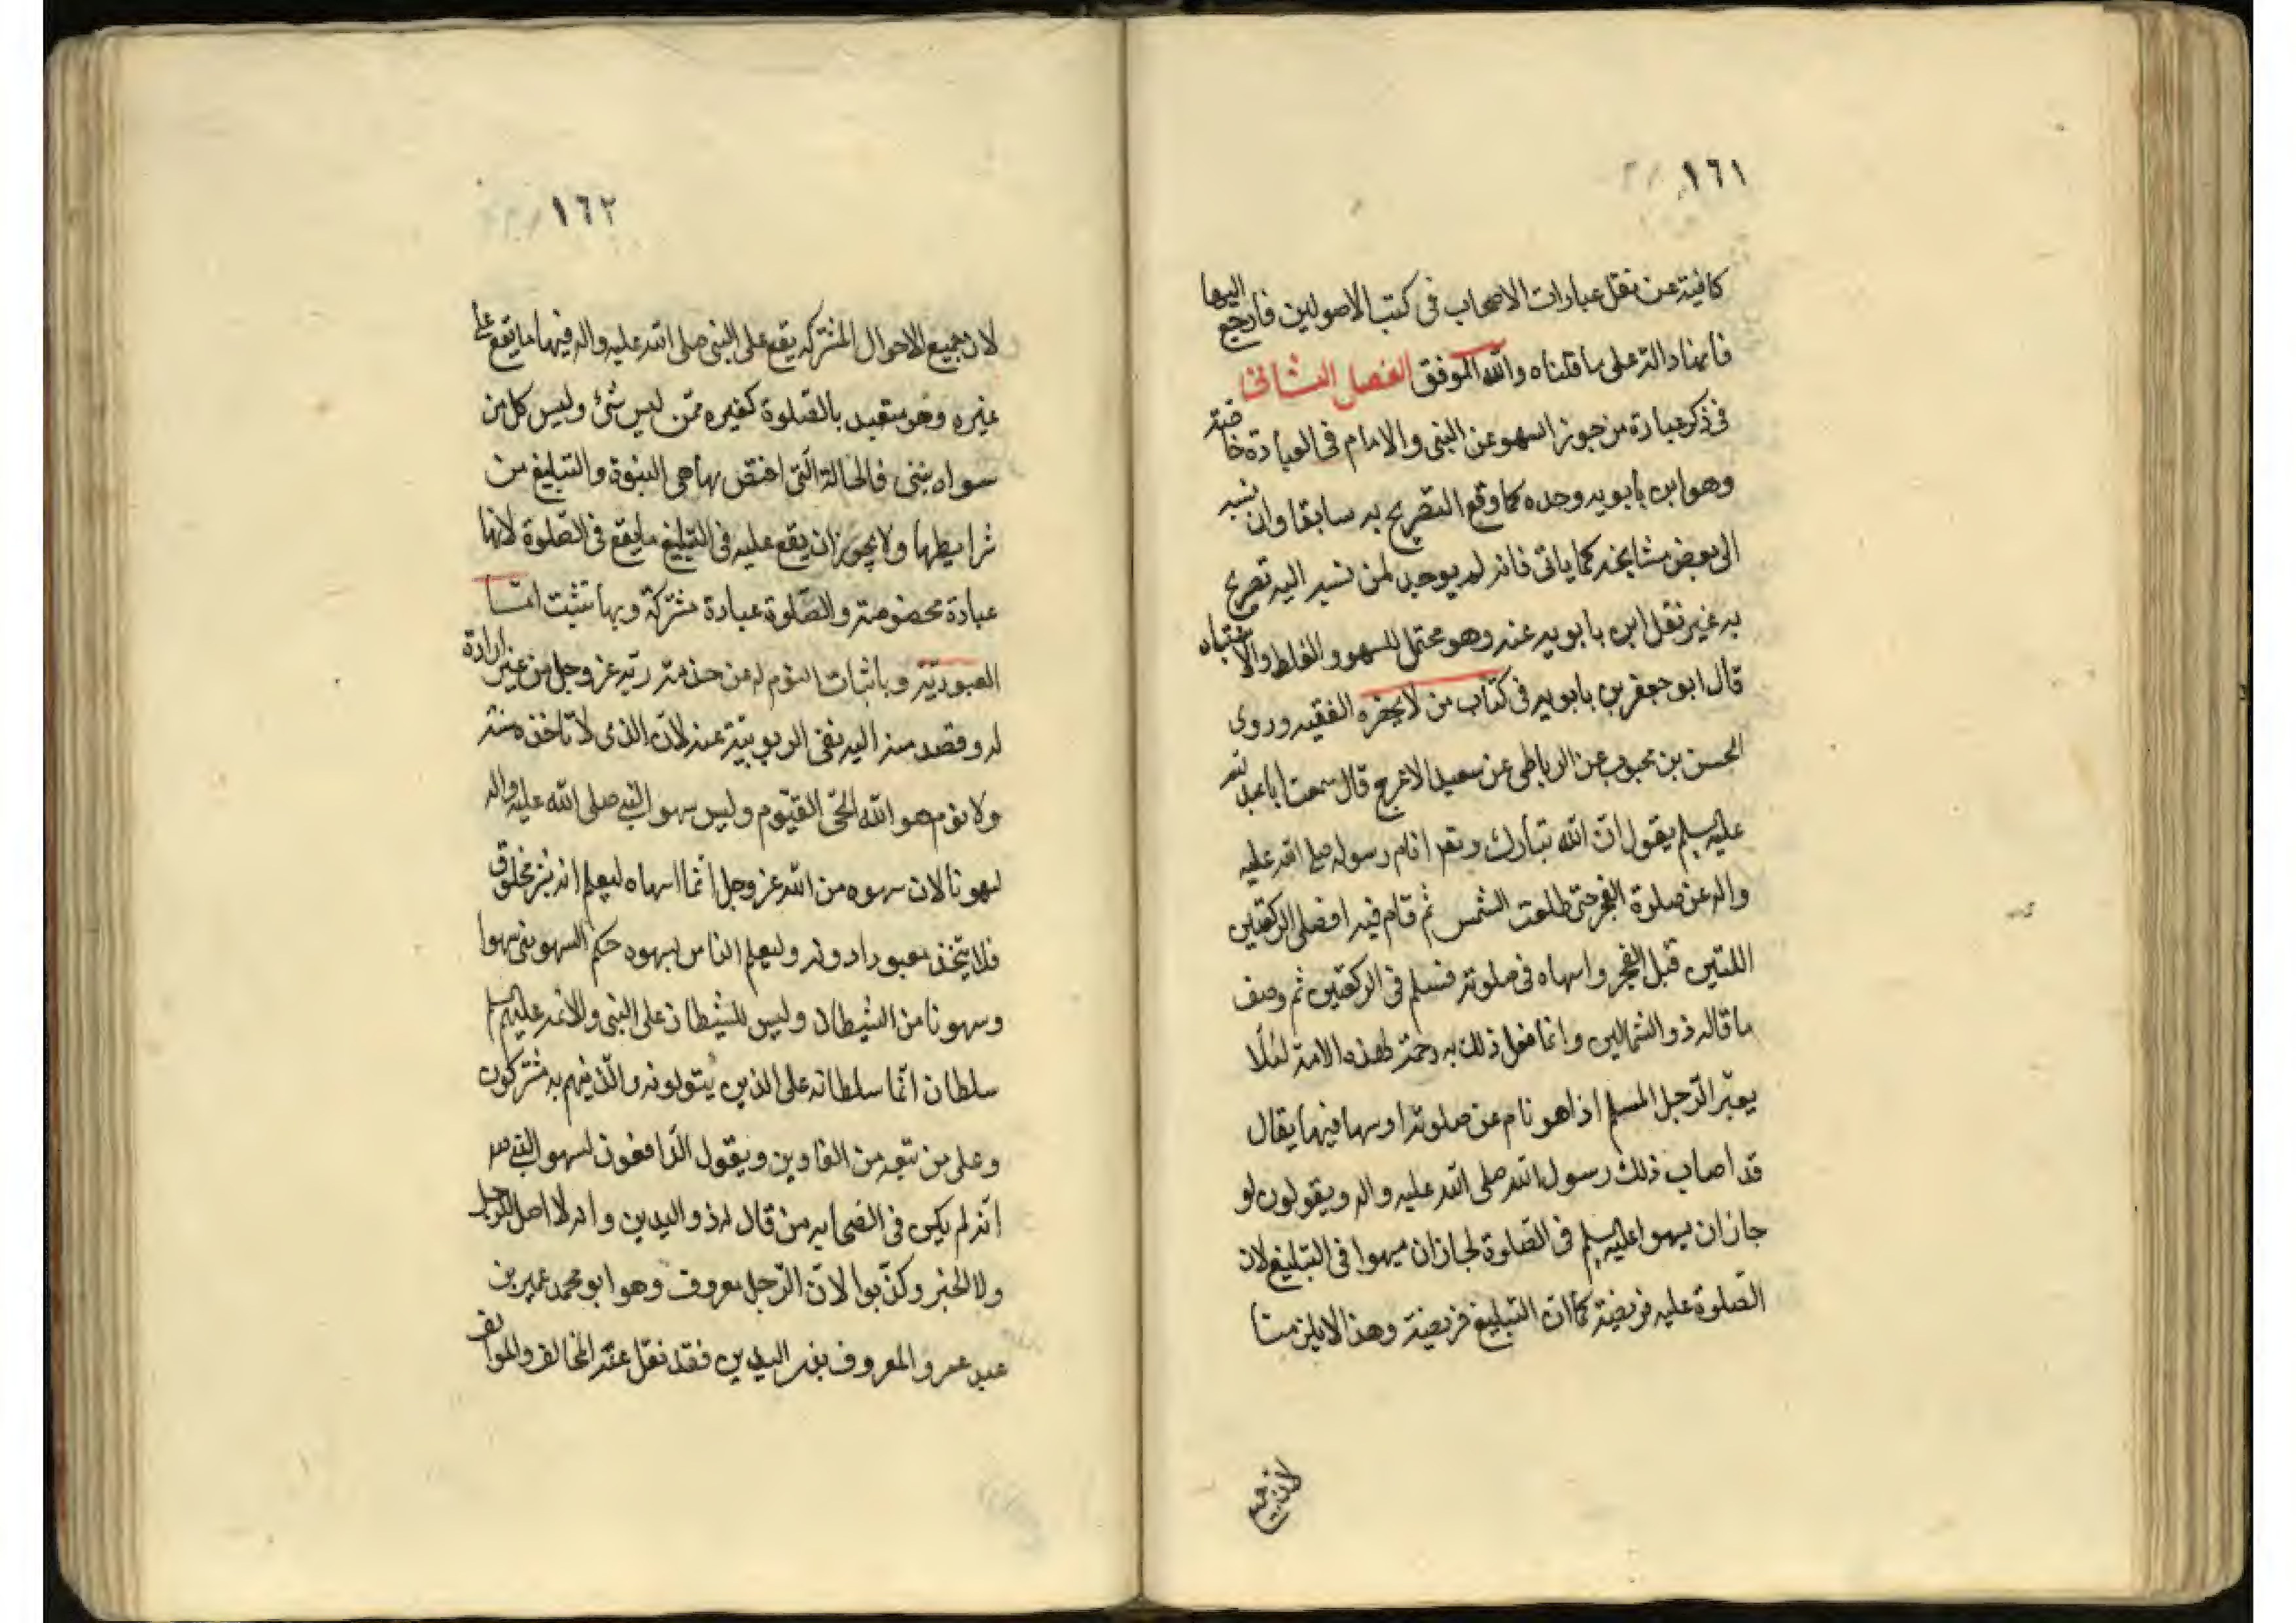 ١٦١
كافية عن نقل عبارات الاصحاب فى كتب الاصولين فارجع اليها
فانها دالة على ما قلناه والله الموفق الفصل الثانى
فى ذكر عبارة من جوز السهو عن النبى والامام فى العبادة خاصة
وهو ابن بابويه وحده كما وقع التصريح به سابقا وان نسبه
الى بعض مشايخه كما ياتى فانه لم يوجد لمن نسبه اليه تصريح
به غير نقل ابن بابويه عنه وهو محتمل للسهو والغلط والاشتباه
قال ابو جعفر بن بابويه فى كتاب من لا يحضره الفقيه وروى
الحسن بن محبوب عن الرباطى عن سعيد الاعرج قال سمعت ابا عبد الله
عليه السلم يقول ان الله تبارك وتعم انام رسوله صلى الله عليه
واله عن صلوة الفجر حتى طلعت الشمس ثم قام فبدا فصلى الركعتين
اللتين قبل الفجر واسهاه فى صلوته فسلم فى الركعتين ثم وصف
ما قاله ذو الشمالين وانما فعل ذلك به رحمة لهذه الامة لئلا
يعيّر الرّجل المسلم اذا هو نام عن صلوته او سها فيها يقال
قد اصاب ذلك رسول الله صلى الله عليه واله ويقولون لو
جاز ان يسهو عليه السلم فى الصّلوة لجاز ان يسهوا فى التبليغ لان
الصّلوة عليه فريضة كما ان التبليغ فريضة وهذا لا يلزمنا
لان جميع
١٦٢
لان جميع الاحوال المشتركه يقع على النبى صلى الله عليه واله فيها ما يقع على
غيره وهو متعبد بالصّلوة كغيره ممّن ليس بنبى وليس كل من
سواه بنبى فالحالة الّتى اختص بها هى النبوة والتبليغ من
شرايطها ولا يجوز ان يقع عليه فى التبليغ ما يقع فى الصّلوة لانها
عبادة مخصوصة والصّلوة عبادة مشتركة وبها تثبت له
العبوديّة وباثبات النوم له من خدمة ربّه عز وجل من غير ارادة
له وقصد منه اليه نفى الربوبيّة عنه لانّ الذى لا تاخذه سنة
ولا نوم هو الله الحّى القيّوم وليس سهو النبى صلى الله عليه واله
كسهونا لان سهوه من الله عز وجل انما اسهاه ليعلم انه بشر مخلوق
فلا يتّخذ معبودا دونه وليعلم الناس بسهوه حكم السهو متى سهوا
وسهونا من الشيطان وليس للشيطان على النبى والائمه عليهم السلم
سلطان انّما سلطانه على الذين يتولونه والّذينهم به مشركون
وعلى من تبعه من الغاوين ويقول الدّافعون لسهو النبى ص
انه لم يكن فى الصحابه من قال له ذو اليدين وانه لا اصل للرجل
ولا للخبر وكذّبوا لانّ الرّجل معروف وهو ابو محمد عمير بن
عبد عمرو المعروف بذى اليدين فقد نقل عنه المخالف والموالف